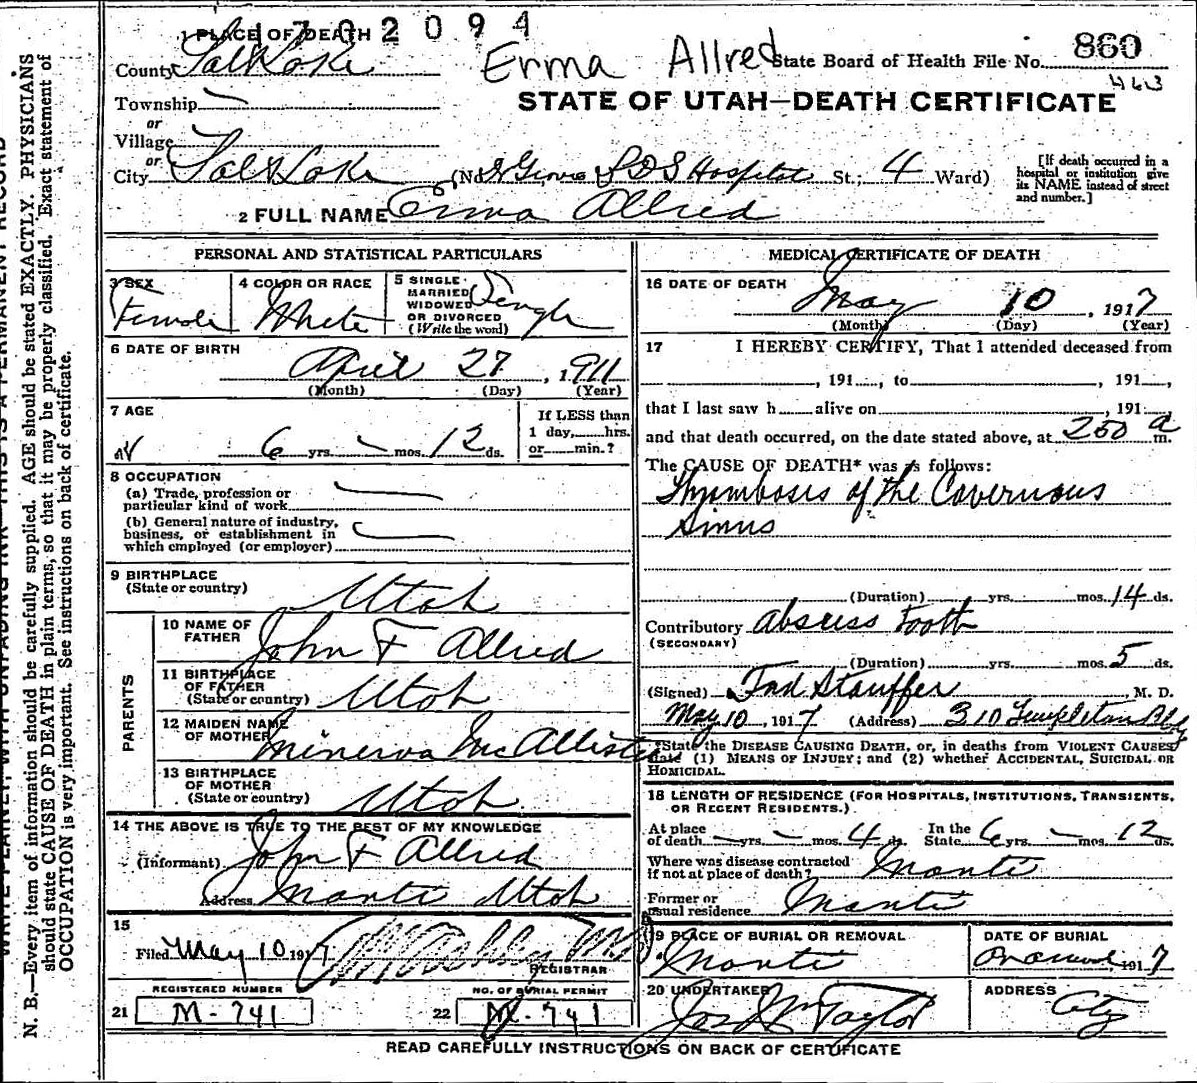 1702094
1 PLACE OF DEATH
County Salt Lake
Erma Allred
State Board of Health File No. 860
Township —
STATE OF UTAH—DEATH CERTIFICATE
or
Village
or
City Salt Lake (No. LDS Hospital St.; 4 Ward)
[If death occurred in a hospital or institution give its NAME instead of street and number.]
2 FULL NAME Erma Allred
PERSONAL AND STATISTICAL PARTICULARS
3 SEX Female
4 COLOR OR RACE White
5 SINGLE MARRIED WIDOWED OR DIVORCED (Write the word) Single
6 DATE OF BIRTH April 27, 1911
(Month) (Day) (Year)
7 AGE
6 yrs. — mos. 12 ds.
If LESS than 1 day,......hrs. or......min.?
8 OCCUPATION
(a) Trade, profession or particular kind of work —
(b) General nature of industry, business, or establishment in which employed (or employer) —
9 BIRTHPLACE (State or country) Utah
PARENTS
10 NAME OF FATHER John F Allred
11 BIRTHPLACE OF FATHER (State or country) Utah
12 MAIDEN NAME OF MOTHER Minerva McAllister
13 BIRTHPLACE OF MOTHER (State or country) Utah
14 THE ABOVE IS TRUE TO THE BEST OF MY KNOWLEDGE
(Informant) John F Allred
Address Manti Utah
15
Filed May 10 1917
REGISTRAR
REGISTERED NUMBER
21 M-741
NO. OF BURIAL PERMIT
22 M-741
MEDICAL CERTIFICATE OF DEATH
16 DATE OF DEATH May 10, 1917
(Month) (Day) (Year)
17 I HEREBY CERTIFY, That I attended deceased from
, 191...., to , 191....,
that I last saw h......alive on , 191
and that death occurred, on the date stated above, at 2 50 a m.
The CAUSE OF DEATH* was as follows:
Thrombosis of the Cavernous
Sinus
(Duration) yrs. mos. 14 ds.
Contributory Abscess Tooth
(SECONDARY)
(Duration) yrs. mos. 5 ds.
(Signed) Tad Stauffer, M. D.
May 10, 1917 (Address) 310 Templeton Bldg
*State the DISEASE CAUSING DEATH, or, in deaths from VIOLENT CAUSES, state (1) MEANS OF INJURY; and (2) whether ACCIDENTAL, SUICIDAL OR HOMICIDAL.
18 LENGTH OF RESIDENCE (FOR HOSPITALS, INSTITUTIONS, TRANSIENTS, OR RECENT RESIDENTS.)
At place of death — yrs. — mos. 4 ds. In the State 6 yrs. — mos. 12 ds.
Where was disease contracted if not at place of death? Manti
Former or usual residence Manti
19 PLACE OF BURIAL OR REMOVAL Manti
DATE OF BURIAL 1917
20 UNDERTAKER Jos Wm Taylor
ADDRESS City
READ CAREFULLY INSTRUCTIONS ON BACK OF CERTIFICATE
WRITE PLAINLY, WITH UNFADING INK—THIS IS A PERMANENT RECORD
N. B.—Every item of information should be carefully supplied. AGE should be stated EXACTLY. PHYSICIANS
should state CAUSE OF DEATH in plain terms, so that it may be properly classified. Exact statement of
OCCUPATION is very important. See instructions on back of certificate.